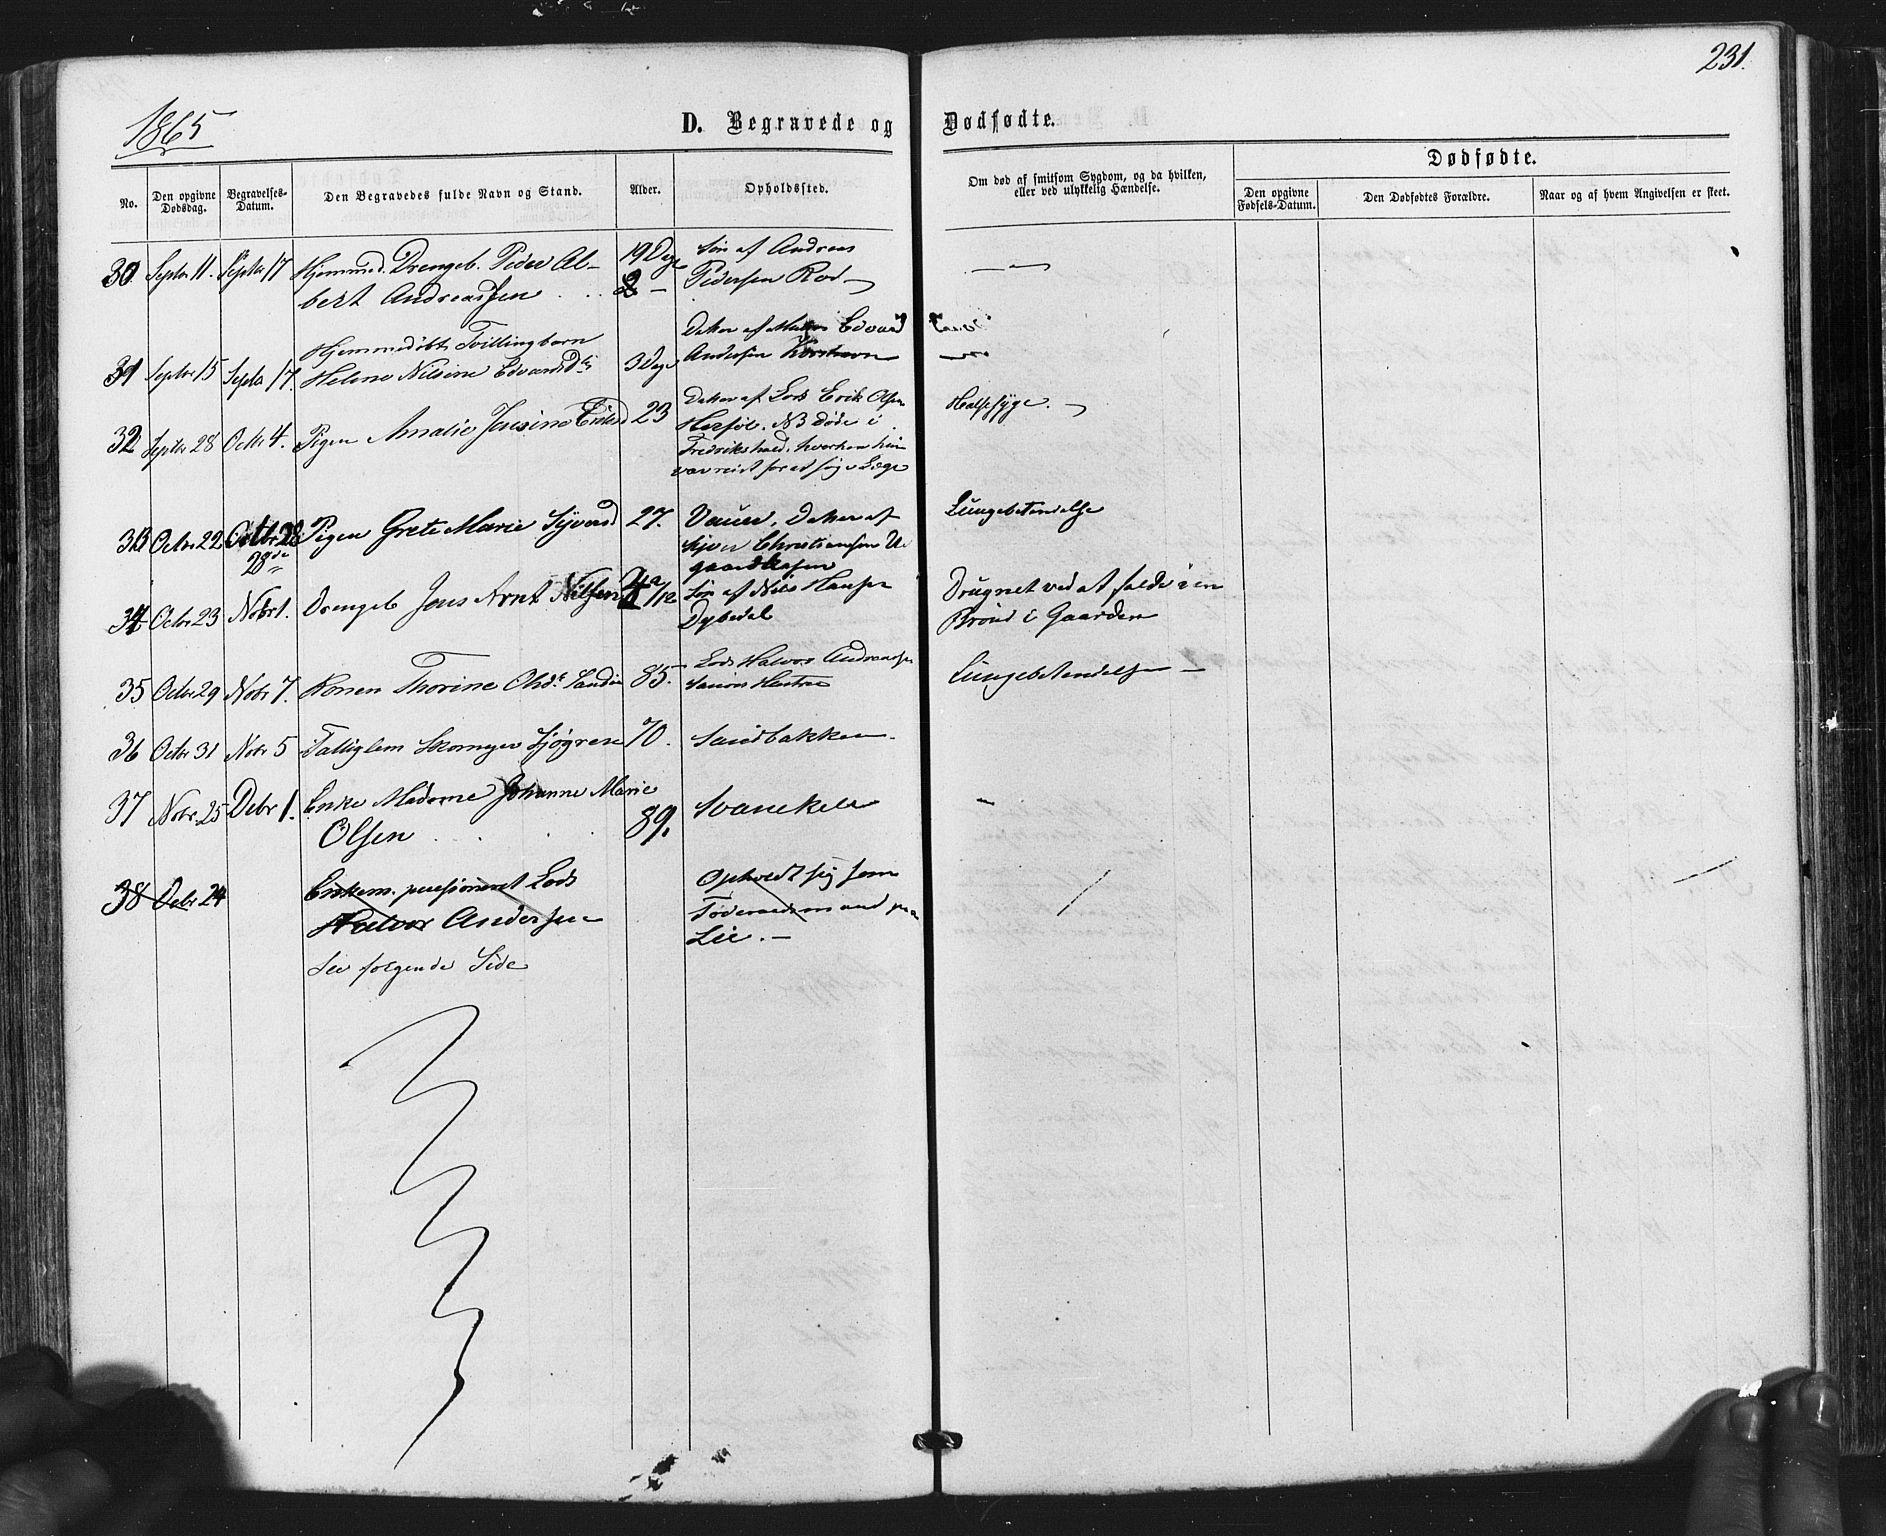 231.
1865
D. Begravede og Dødfødte.
Dødfødte.
No.
Den opgivne Dødsdag.
Begravelses-Datum.
Den Begravedes fulde Navn og Stand.
Alder.
Opholdssted.
Om død af smitsom Sygdom, og da hvilken, eller ved ulykkelig Hændelse.
Den opgivne Fødsels-Datum.
Den Dødfødtes Forældre.
Naar og af hvem Angivelsen er skeet.
30 Septbr 11. Septbr 17 Hjemmed. Drengeb. Peder Al- 19 Dage Søn af Andreas
bert Andreassen Pedersen Rod
Hjemmedøbt Tvillingbarn Datter af Edvard
31 Septbr 15 Septbr 17. Helene Nilsine Edvardsd. 3 Dage Andersen
32 Septbr 28 Octbr 4. Pigen Amalie 23 Datter af Lods Erik Olsen Halssyge.
Herføl. NB døde i
Fredrikshald, hvorhen hun
var reist for at søge Læge
33 Octbr 22 Octbr 28 Pigen Grete Marie Syversd 27. Vauer, Datter af Lungebetændelse
28de Christiansen
34 Octbr 23 Novbr 1. Drengeb Jens Arnt Nilsen /12 Søn af Nils Hansen Drugnet ved at falde i en
Dybedal Brønd i Gaarden
35 Octbr 29 Novbr 7. Konen Thorine 85. Lods Halvor Andreassen Lungebetændelse
36 Octbr 31 Novbr 5 Fattiglem Skomager Sjøgren 70. Sandbakken.
37 Novbr 25 Debr 1. Enke Madame Johanne Marie 89. Svanekil
Olsen
38 24 Enkem. pensioneret Lods Opholdt sig som
Halvor Andersen Føderaadsmand paa
Lie.
See følgende Side